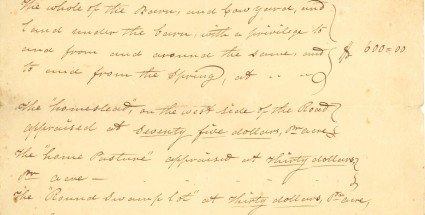 The whole of the Barn, and Cow yard, and
land under the Barn with a privilege to
and from and around the same and
to and from the Spring, at .. .. $ 600=00
The "homestead", on the west side of the Road
appraised at Seventy five dollars, Pr acre
The "home Pasture" appraised at Thirty dollars
Pr acre —
The "Round Swamp Lot" at Thirty dollars, Pr acre,